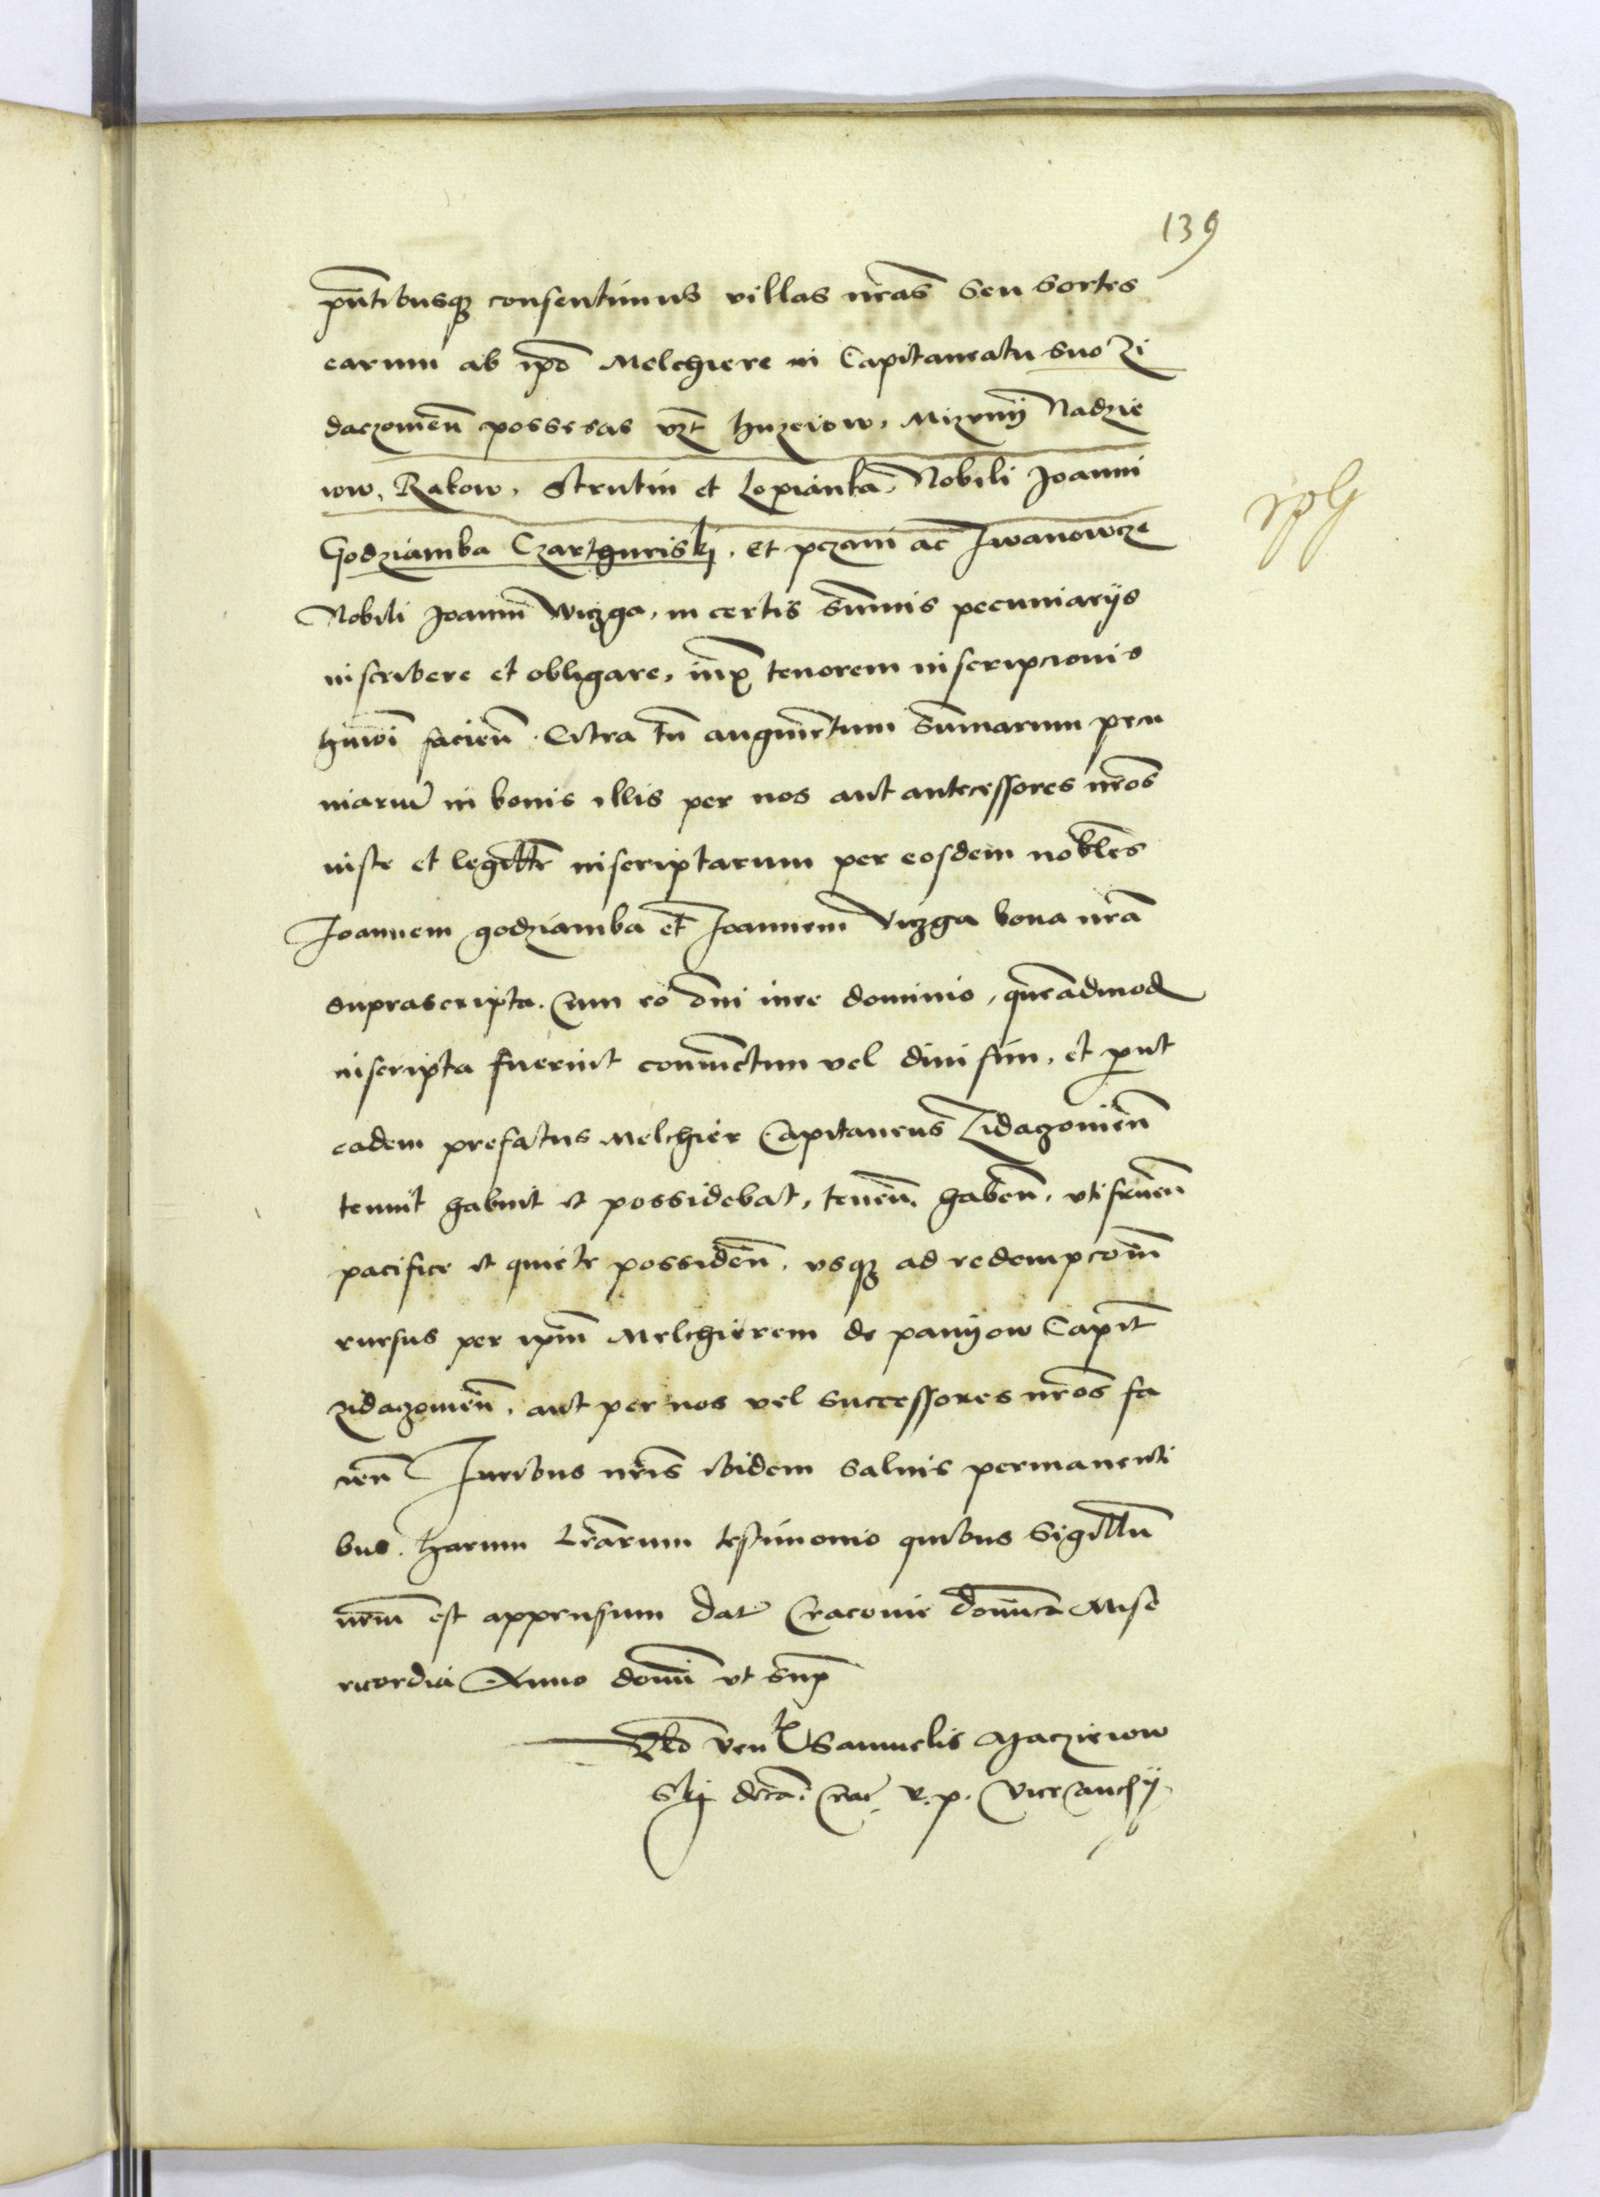 139
pñtibusq3 consentimus villas nras̃ seu sortes
earum ab ipõ Melchiere in Capitaneatu suo Zi
daczowień possesas vzt huzeiow, Mizynij Nadzie
iow, Rakow, Strutin et Lopianka Nobili Joanni
Godziamba Czarthuriskij, et pczani ac Iwanowcze
Nobili Joanni Wyzga, in certis sum̃is pecuniarijs
inscribere et obligare, iuxᵃ tenorem inscripcionis
hmõi facień. Citra tñ augmentum sum̃arum pecu
niariar̃ in bonis illis per nos aut antecessores nros̃
iuste et legittĩe inscriptarum per eosdem nobiles
Joannem godziamba et Joannem Vyzga bona nrã
suprascripta. Cum eo om̃i iure dominio, quẽadmod
inscripta fuerint coniunctim vel diuisim, et put
eadem prefatus Melchier Capitaneus Zidazowień
tenuit habuit et possidebat, tenen̄. haben̄. vtifruen̄
pacifice et quiete possiden̄. vsq3 ad redempcõem
rursus per ipm̃ Melchierem de panijow Capit̃
zidazowień. aut per nos vel successores nros̃ fa
cień Juribus nris̃ ibidem saluis permanenti
bus. harum lrãrum testimonio quibus Sigillũ
nrm̃ est appensum Dat̃ Cracouie dom̃ica Mise
ricordia Anno domĩ vt supᵃ
Rlõ Ven Samuelis Maczieiow
skij deca. Crac̃ R. p. Vicecanc̃ij